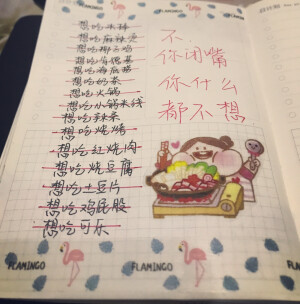 想吃麻辣烫
想吃椰子鸡
想吃海底捞
想吃奶茶
想吃火锅
想吃小锅米线
想吃辣条
想吃烧烤
想吃红烧肉
想吃烧豆腐
想吃土豆片
想吃鸡屁股
想吃可乐
不
你闭嘴
你什么
都不想
FLAMINGO
FLAMINGO
FLAMINGO